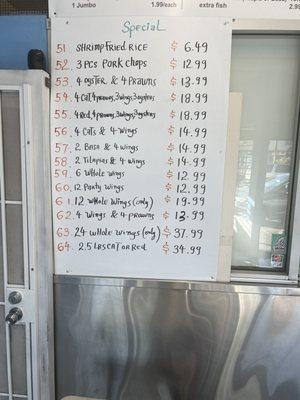 1 Jumbo
1.99/each
extra fish
2.99
Special
51 SHRIMP FRIED RICE $ 6.49
52. 3 PCS PORK CHOPS $ 12.99
53. 4 OYSTER & 4 PRAWNS $ 13.99
54. 4 CAT, 4 PRAWNS, 3 WINGS, 3 OYSTERS $ 18.99
55. 4 Red, 4 PRAWNS, 3 WINGS, 3 OYSTERS $ 18.99
56. 4 CATS & 4 WINGS $ 14.99
57. 2 Basa & 4 wings $ 14.99
58. 2 Tilapias & 4 wings $ 14.99
59. 6 WHole wings $ 12.99
60. 12 Party wings $ 12.99
61. 12 WHole WINGS (only) $ 19.99
62. 4 WINGS & 4 PRAWNS $ 13.99
63. 24 WHole WINGS (only) $ 37.99
64. 2.5 LBS CAT OR RED $ 34.99